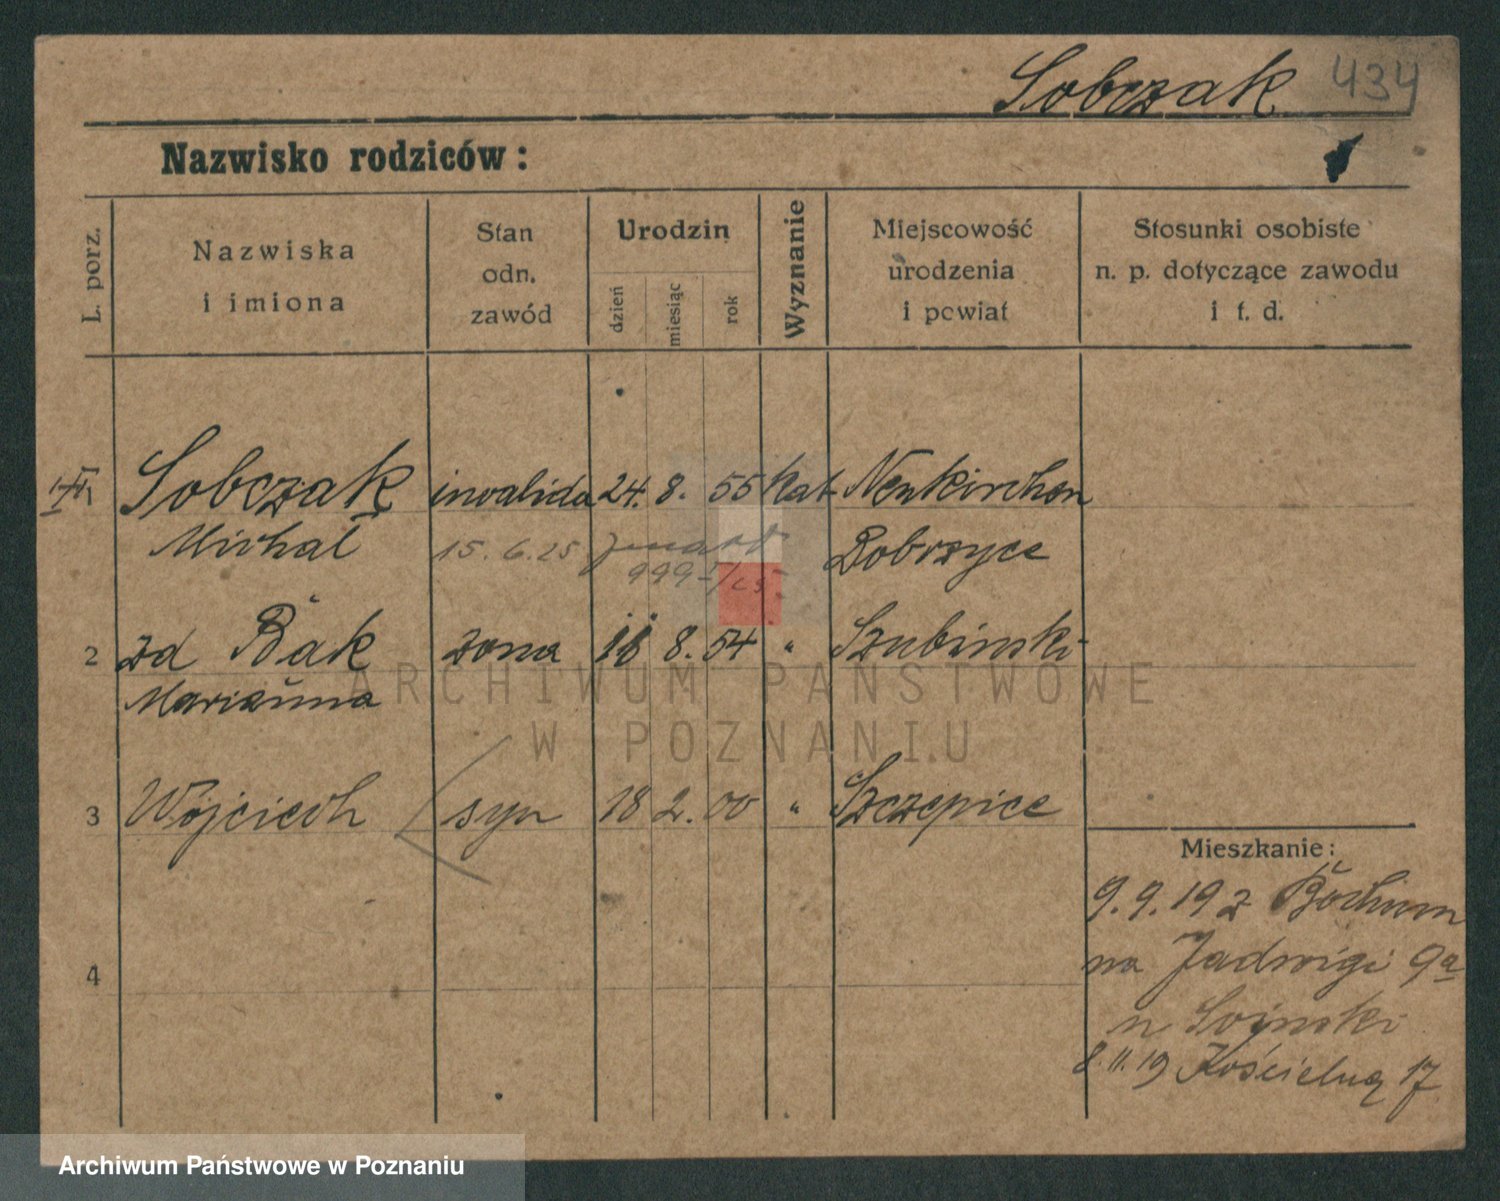 Sobczak 434
Nazwisko rodziców:
L. porz.
Nazwiska
i imiona
Stan
odn.
zawód
Urodzin
dzień
miesiąc
rok
Wyznanie
Miejscowość
urodzenia
i powiat
Stosunki osobiste
n. p. dotyczące zawodu
i t. d.
Sobczak inwalida 24. 8. 55 kat. Neukirchen
Michał 15. 6. 25 zmarł Dobrzyce
999
2 zd Bąk żona 8. 54 " Szubinski
Marianna
3 Wojciech syn 18 2. 00 " Szczepice
Mieszkanie:
9. 9. 19 z Bochum
na Jadwigi 9a
4
8. 11. 19 Kościelną 17
ARCHIWUM PAŃSTWOWE
W POZNANIU
Archiwum Państwowe w Poznaniu